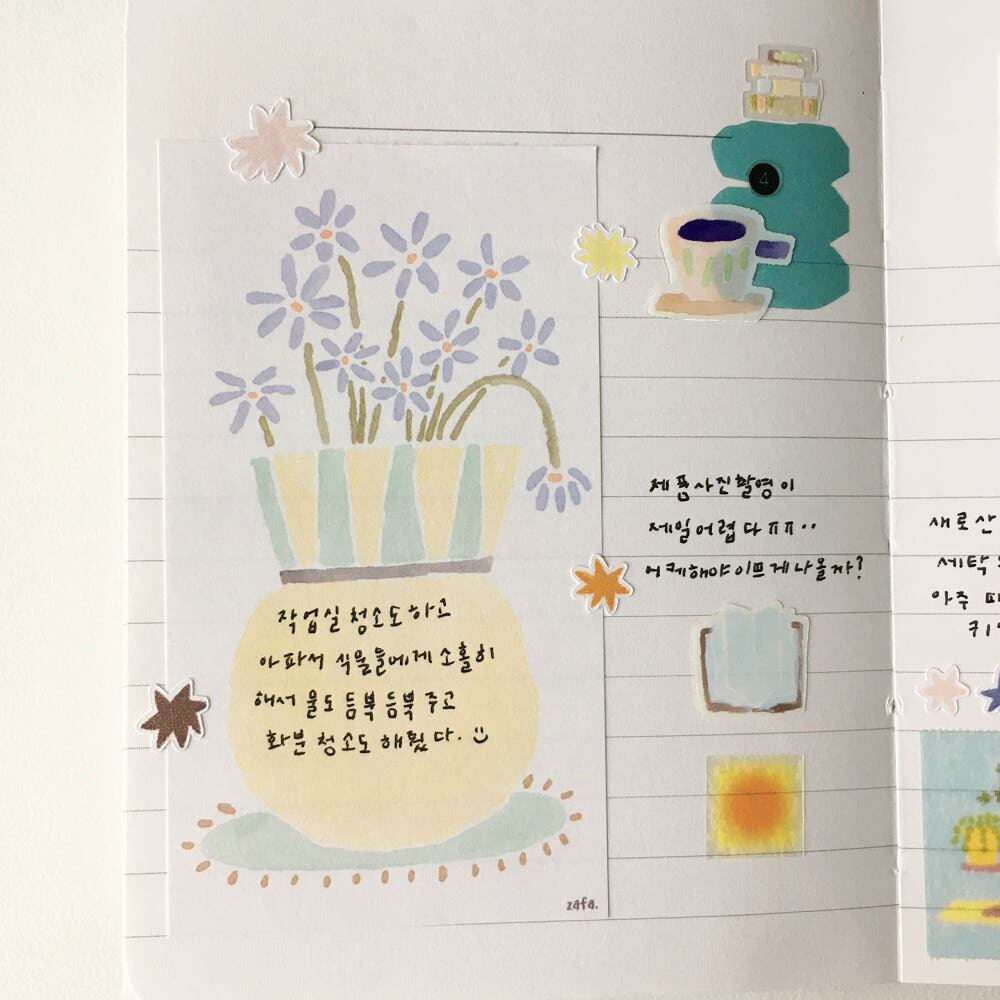 4
제품사진촬영이
제일어렵다ㅠㅠ··
어케해야이쁘게나올까?
작업실 청소도하고
아파서 식물들에게 소홀히
해서 물도 듬북 듬북 주고
화분 청소도 해줬다. :)
zafa.
새로산
세탁
아주
귀